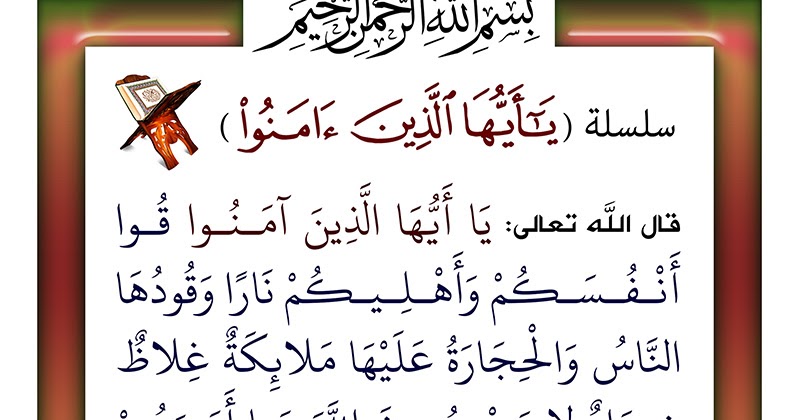 بِسْمِ اللهِ الرَّحْمٰنِ الرَّحِيْمِ
سلسلة (يَـٰٓأَيُّهَا ٱلَّذِينَ ءَامَنُوا۟)
قال الله تعالى: يَا أَيُّهَا الَّذِينَ آمَنُوا قُوا
أَنْفُسَكُمْ وَأَهْلِيكُمْ نَارًا وَقُودُهَا
النَّاسُ وَالْحِجَارَةُ عَلَيْهَا مَلائِكَةٌ غِلاظٌ